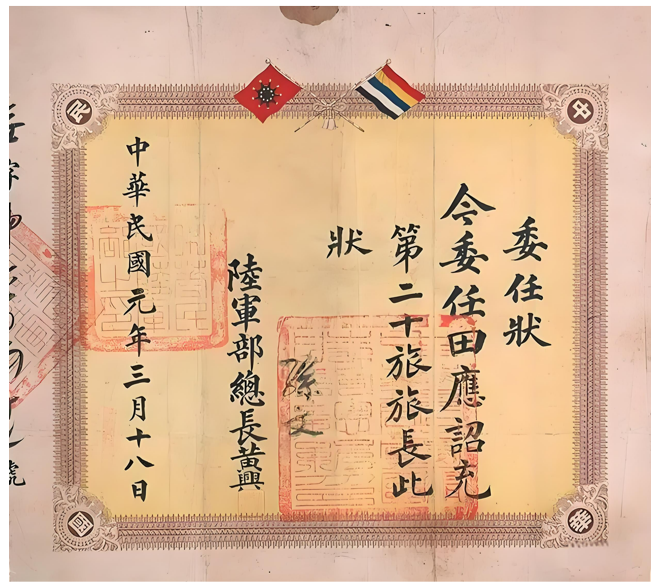 委任狀
令委任田應詔充
第二十旅旅長此
狀
孫文
陸軍部總長黃興
中華民國元年三月十八日
號
中
華
民
國